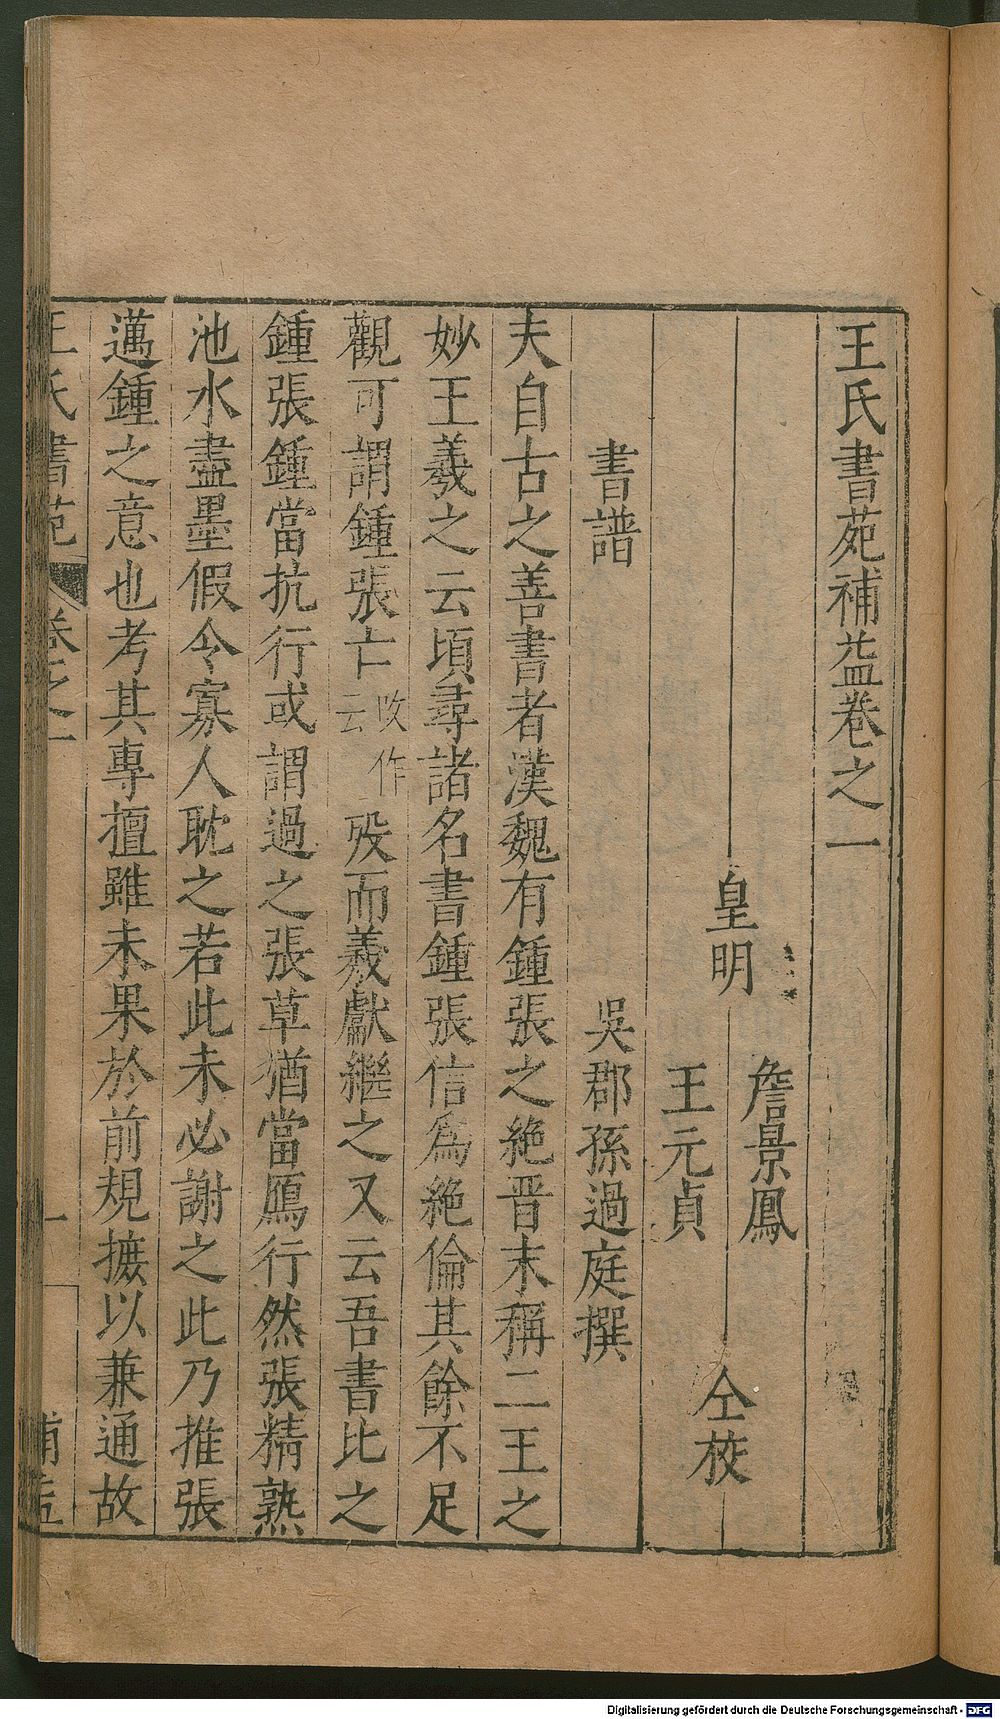 王氏書苑補益卷之一
皇明
詹景鳳
王元貞
仝校
書譜
吳郡孫過庭撰
夫自古之善書者漢魏有鍾張之絶晋末稱二王之
妙王羲之云頃尋諸名書鍾張信爲絶倫其餘不足
觀可謂鍾張亡改作云歿而羲獻繼之又云吾書比之
鍾張鍾當抗行或謂過之張草猶當鴈行然張精熟
池水盡墨假令寡人耽之若此未必謝之此乃推張
邁鍾之意也考其專擅雖未果於前規摭以兼通故
王氏書苑 卷之一 一 補益
Digitalisierung gefördert durch die Deutsche Forschungsgemeinschaft - DFG